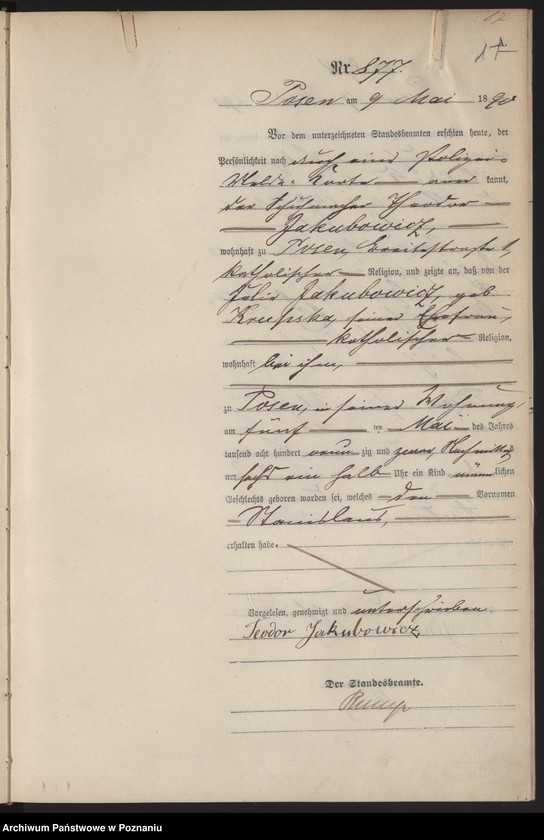 17
Nr. 877.
Posen am 9 Mai 1890
Vor dem unterzeichneten Standesbeamten erschien heute, der
Persönlichkeit nach durch eine Polizei-
Melde-Karte aner kannt,
der Schuhmacher Theodor
Jakubowicz,
wohnhaft zu Posen, Breitestraße
katholischer Religion, und zeigte an, daß von der
Jakubowicz, geb.
Krupska, seiner Ehefrau,
katholischer Religion,
wohnhaft bei ihm,
zu Posen, in seiner Wohnung,
am fünf ten Mai des Jahres
tausend acht hundert neun zig und Nachmittag
um sechs ein halb Uhr ein Kind männ lichen
Geschlechts geboren worden sei, welches den Vornamen
Stanislaus,
erhalten habe.
Vorgelesen, genehmigt und unterschrieben.
Teodor Jakubowicz
Der Standesbeamte.
Archiwum Państwowe w Poznaniu